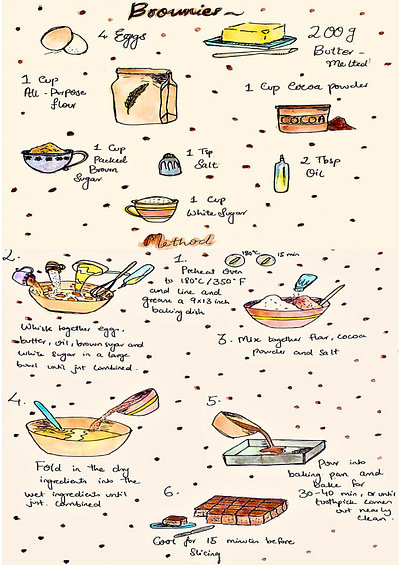 Brownies~
4 Eggs
200g
Butter -
Melted
1 Cup
All-Purpose
flour
1 Cup Cocoa powder
COCOA
1 Cup
Packed
Brown
Sugar
1 Tsp
Salt
2 Tbsp
Oil
1 Cup
White Sugar
Method
1.
180°C
15 min
Preheat Oven
to 180°C/350°F
and line and
grease a 9x13 inch
baking dish
2.
Whisk together eggs,
butter, oil, brown sugar and
white sugar in a large
bowl until just combined.
3. Mix together flour, cocoa
powder and salt
4.
Fold in the dry
ingredients into the
wet ingredients until
just combined
5.
Pour into
baking pan and
Bake for
30-40 min, or until
toothpick comes
out nearly
clean.
6.
Cool for 15 minutes before
slicing